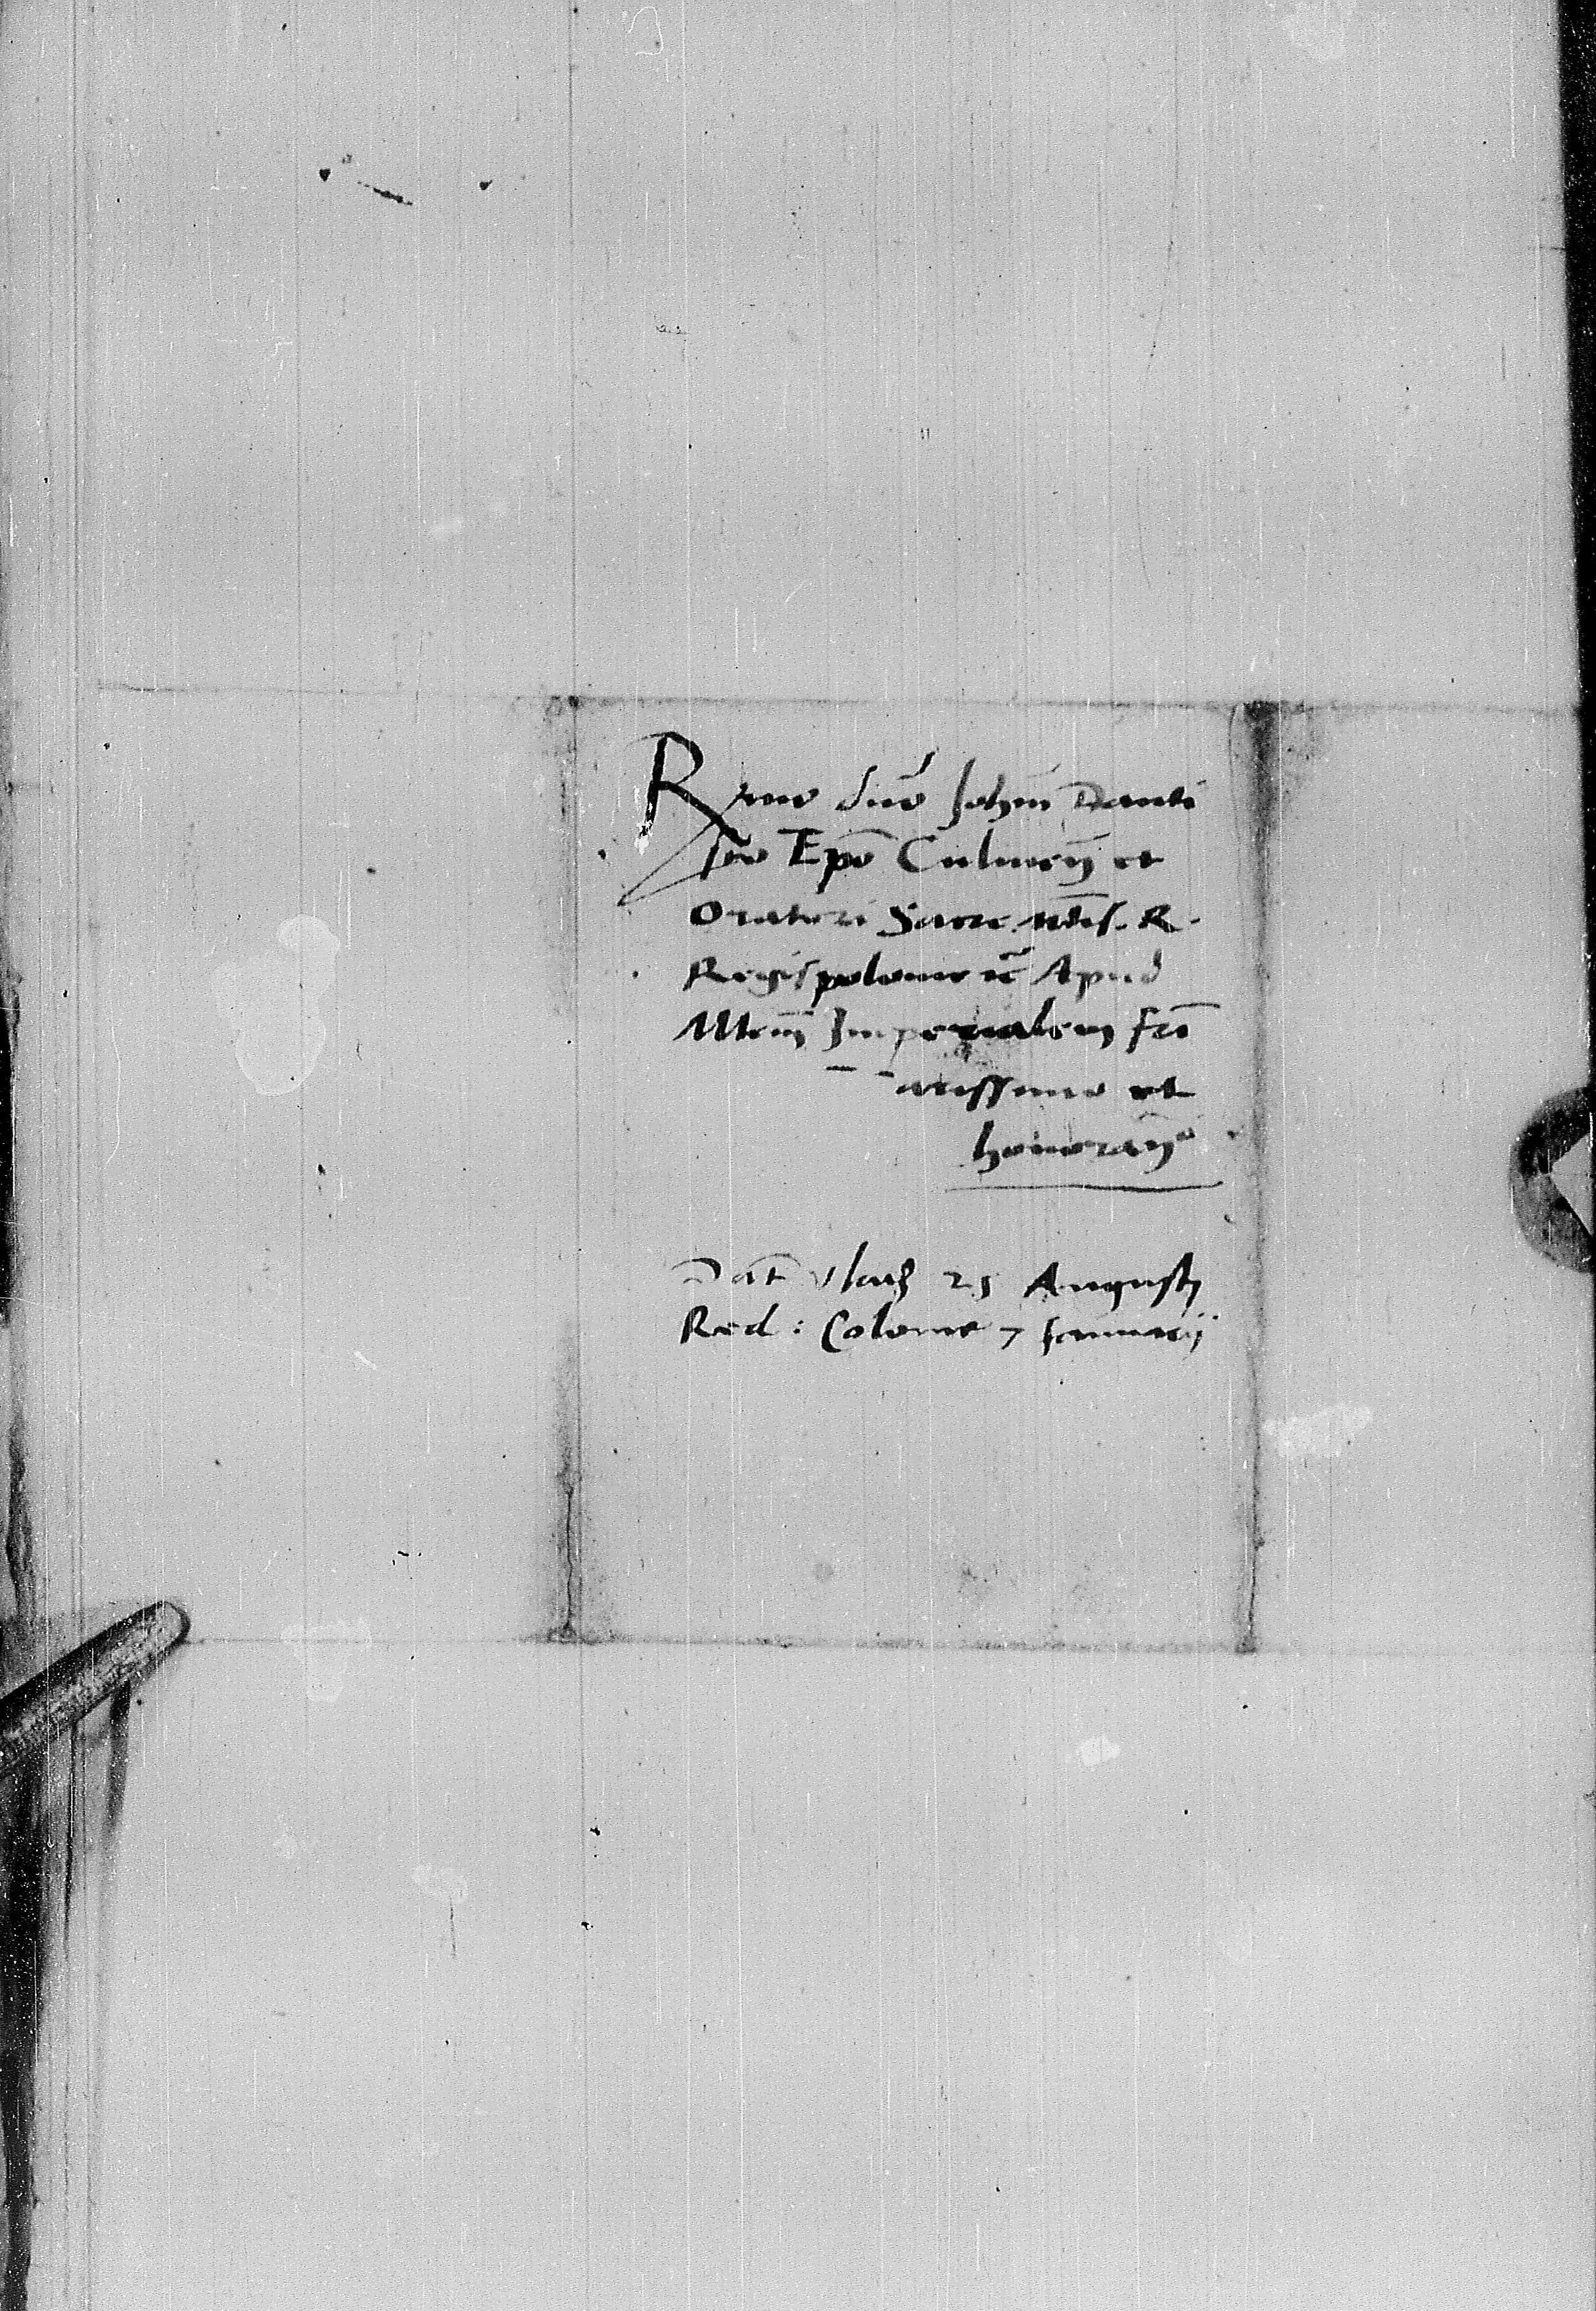 Rmo dno Johanni Danti
sco Epo Culmen et
Oratori Sacre Mtis. R.
Regis polonie etc Apud
Mtem Imperialem fri
carissimo et
honoran°
Dat Vlau3 25 Augusti
Red : Colonie 7 Januarij